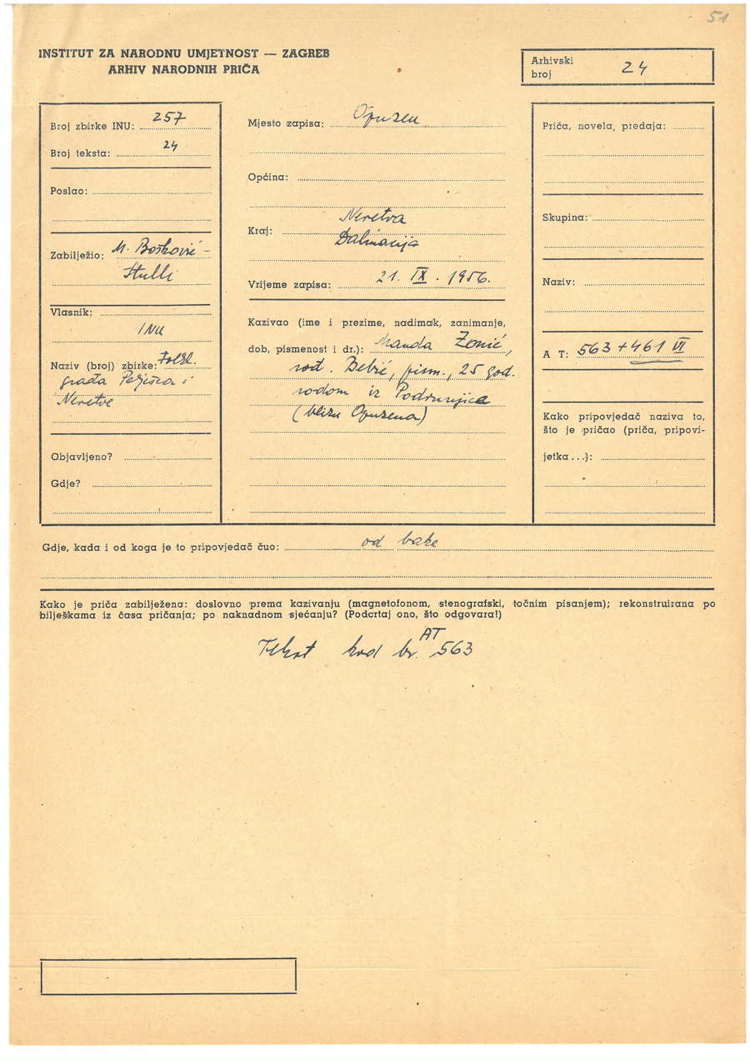 51
INSTITUT ZA NARODNU UMJETNOST — ZAGREB
ARHIV NARODNIH PRIČA
Arhivski
broj 24
Broj zbirke INU: 257
Broj teksta: 24
Poslao:
Zabilježio: M. Bošković-
Stulli
Vlasnik:
INU
Naziv (broj) zbirke: Folkl.
građa Pelješca i
Neretve
Objavljeno?
Gdje?
Mjesto zapisa: Opuzen
Općina:
Neretva
Kraj: Dalmacija
Vrijeme zapisa: 21. IX. 1956.
Kazivao (ime i prezime, nadimak, zanimanje,
dob, pismenost i dr.): Manda Zonić,
rođ. Bebić, pism., 25 god.
rodom iz
(blizu Opuzena)
Priča, novela, predaja:
Skupina:
Naziv:
A T: 563 + 461 VI
Kako pripovjedač naziva to,
što je pričao (priča, pripovi-
jetka...):
Gdje, kada i od koga je to pripovjedač čuo: od bake
Kako je priča zabilježena: doslovno prema kazivanju (magnetofonom, stenografski, točnim pisanjem); rekonstruirana po
bilješkama iz časa pričanja; po naknadnom sjećanju? (Podcrtaj ono, što odgovara!)
Tekst kod br. AT 563